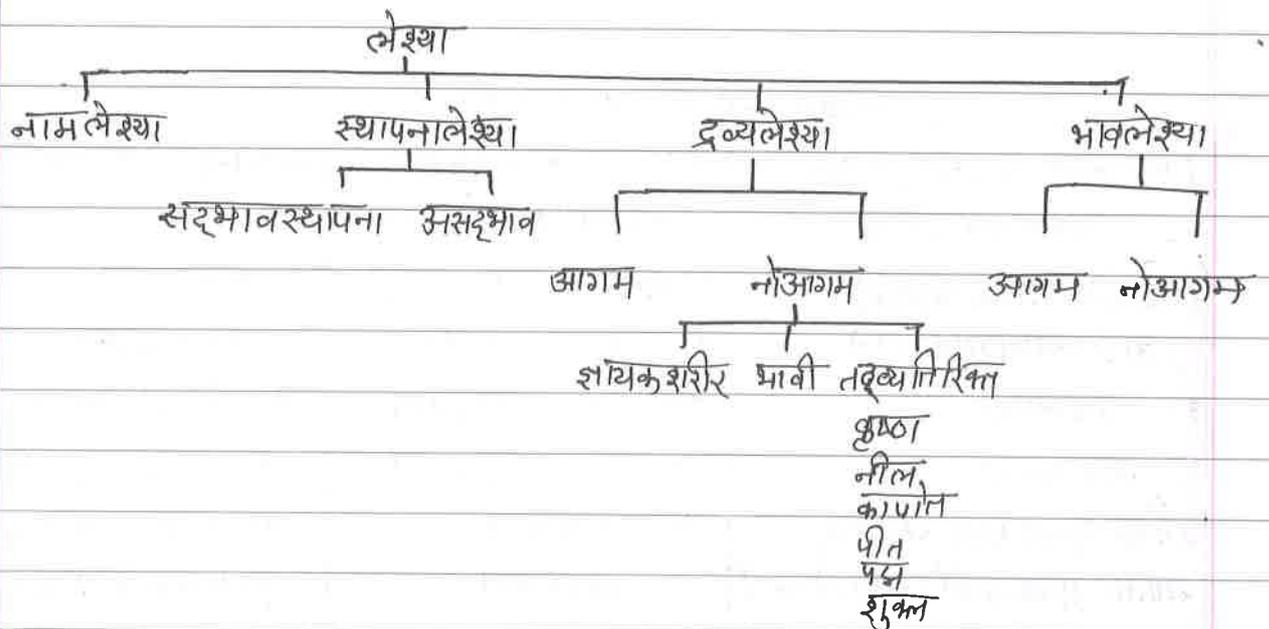 लेश्या
नामलेश्या स्थापनालेश्या द्रव्यलेश्या भावलेश्या
सद्भावस्थापना असद्भाव
आगम नोआगम आगम नोआगम
ज्ञायकशरीर भावी तद्व्यतिरिक्त
कृष्ण
नील
कापोत
पीत
पद्म
शुक्ल